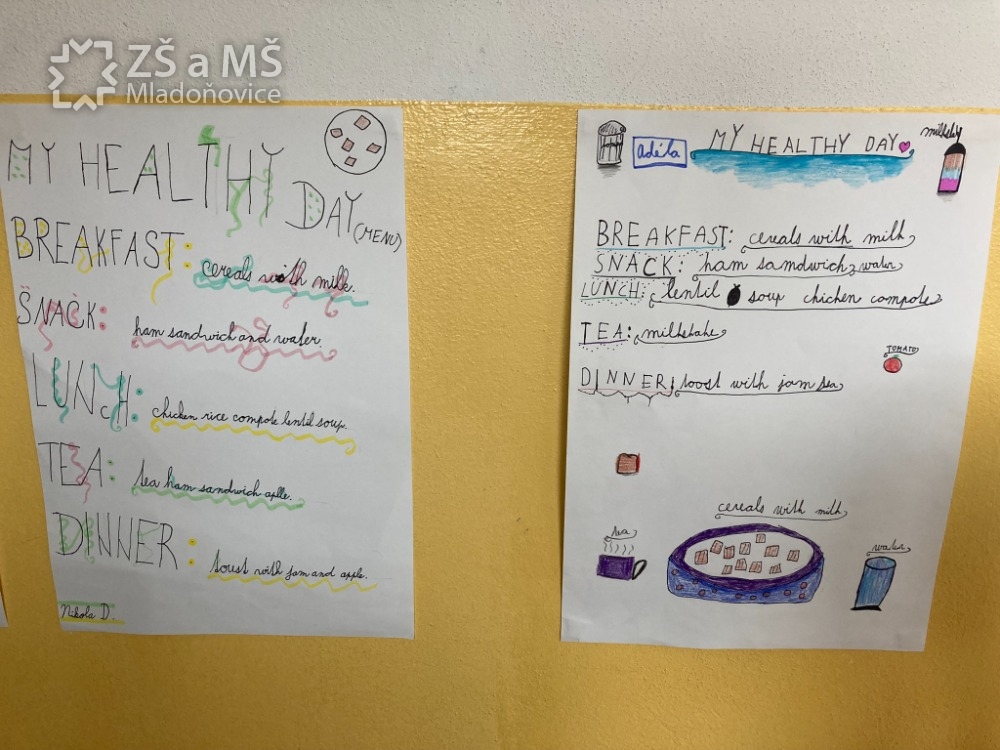 ZŠ a MŠ
Mladoňovice
MY HEALTHY
DAY (MENU)
BREAKFAST: cereals with milk.
ŠNAČK: ham sandwich and water.
LUNcH: chicken rice compote lentil soup.
TEA: tea ham sandwich aplle.
DINNER: toust with jam and apple.
Nikola D.
adéla
MY HEALTHY DAY
BREAKFAST: cereals with milk
SNACK: ham samdwich, water
LUNCH: lentil soup chicken compote
TEA: milkshake
TOMATO
DINNER: toost with jam tea
cereals with milk
tea
water